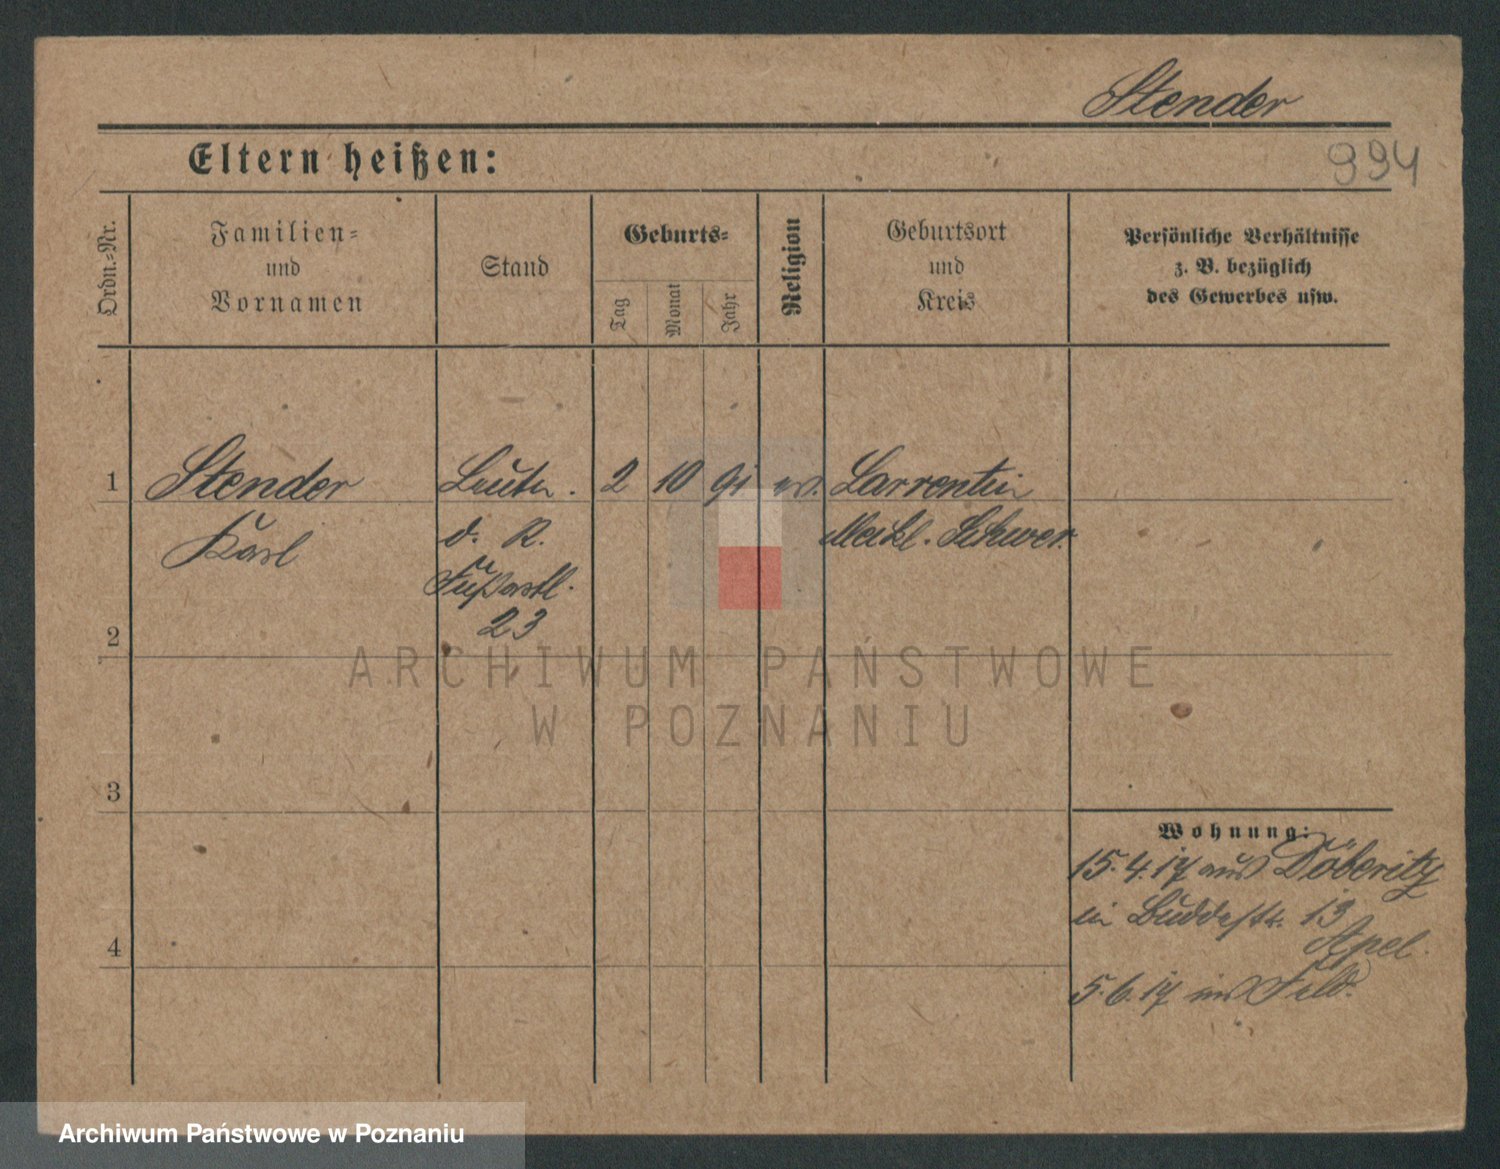 Stender
Eltern heißen:
994
Ordn.-Nr.
Familien-
und
Vornamen
Stand
Geburts-
Tag
Monat
Jahr
Religion
Geburtsort
und
Kreis
Persönliche Verhältnisse
z. B. bezüglich
des Gewerbes usw.
1
Stender
Leutn.
2
10
91
ev.
Larrentin
Karl
d. R.
Meckl. Schwer.
Fußartl.
23
2
ARCHIWUM PAŃSTWOWE
W POZNANIU
3
Wohnung:
15.4.17 aus Döberitz
in Buddestr. 13
Apel.
4
5.6.17 ins Feld.
Archiwum Państwowe w Poznaniu